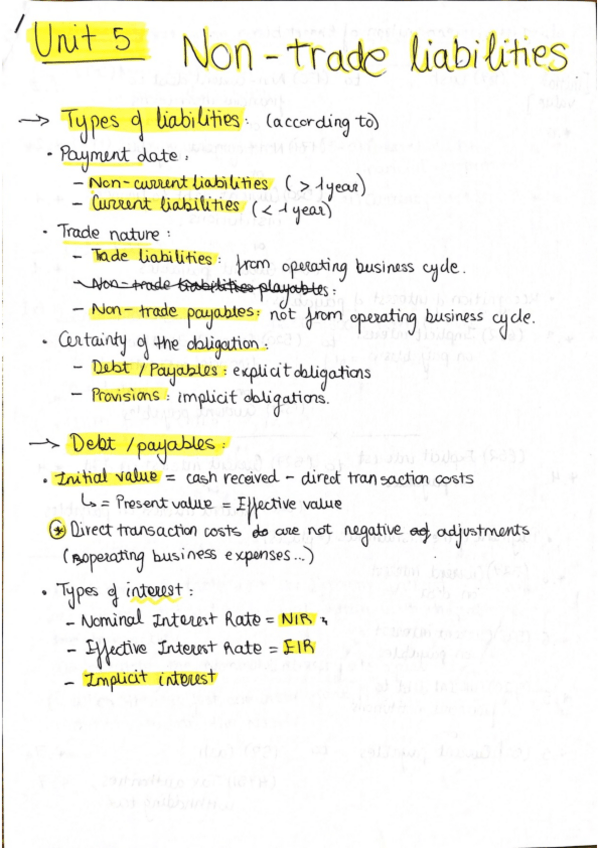 Unit 5 Non-trade liabilities.
→ Types of liabilities: (according to)
• Payment date:
- Non-current liabilities (> 1 year)
- Current liabilities (< 1 year)
• Trade nature:
- Trade liabilities: from operating business cycle.
- Non-trade liabilities playables:
- Non-trade payables: not from operating business cycle.
• Certainty of the obligation:
- Debt / Payables: explicit obligations
- Provisions: implicit obligations.
→ Debt / payables:
• Initial value = cash received - direct transaction costs
↳ = Present value = Effective value
* Direct transaction costs do are not negative adjustments
(operating business expenses...)
• Types of interest:
- Nominal Interest Rate = NIR
- Effective Interest Rate = EIR
- Implicit interest